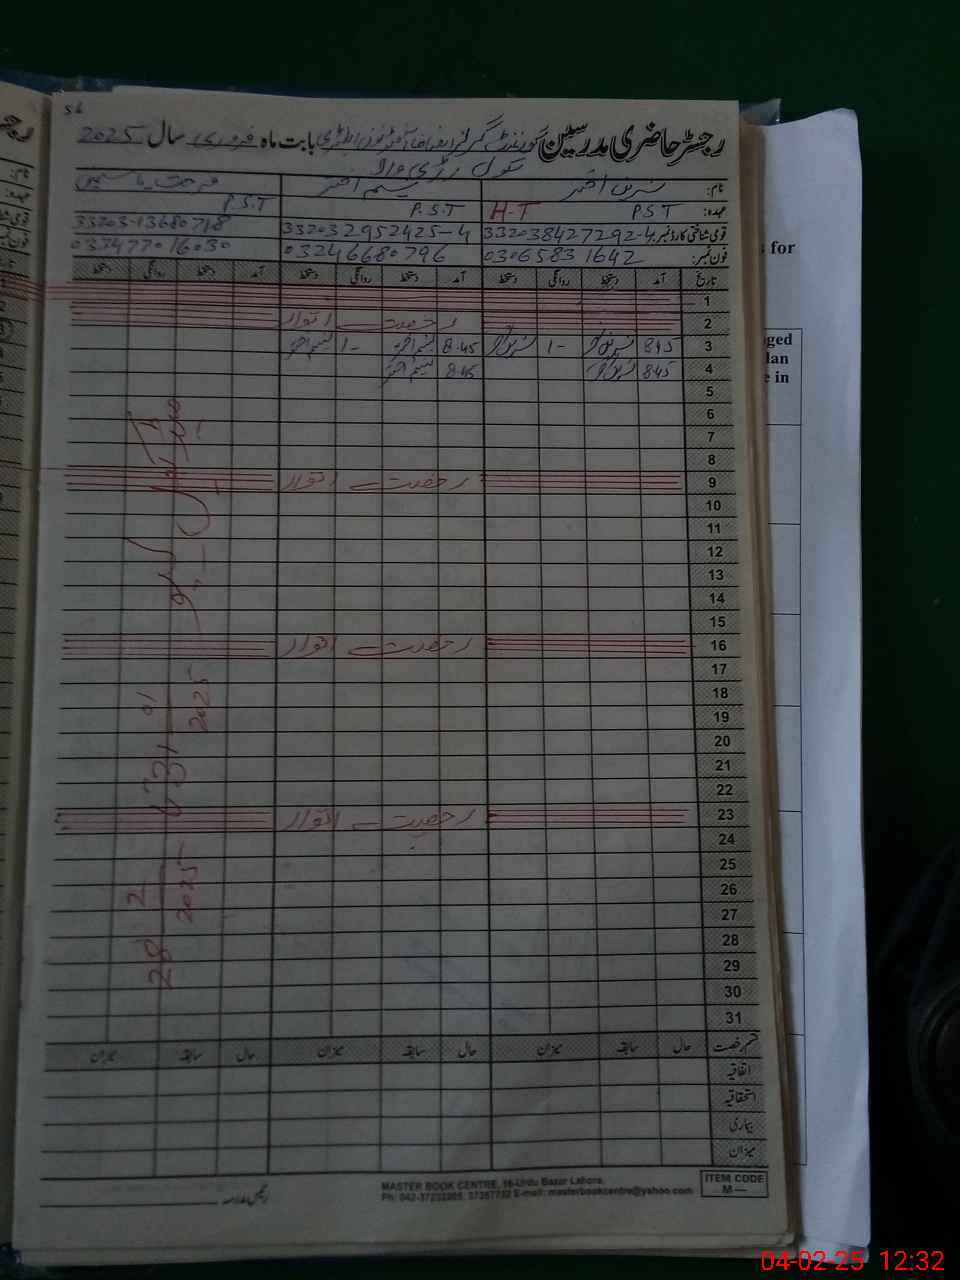 رجسٹر حاضری مدرسین گورنمنٹ گرلز بابت ماہ فروری سال 2025
سکول
نام: نسرین اختر نسیم اختر فرحت یاسمین
عہدہ: P.S.T H-T P.S.T P.S.T
قومی شناختی کارڈ نمبر: 33203-8427292-4 33203 2952425-4 33203-13680718
فون نمبر: 0306583 1642 03246680796 033477016030
تاریخ آمد دستخط روانگی دستخط آمد دستخط روانگی دستخط آمد دستخط روانگی دستخط
1
2 رخصت اتوار
3 8:45 نسرین اختر 1- نسرین اختر 8.45 نسیم اختر 1- نسیم اختر
4 845 نسرین اختر 8.45 نسیم اختر
5
6
7
8
9 رخصت اتوار
10
11
12
13
14
15
16 رخصت اتوار
17
18
19
20
21
22
23 رخصت اتوار
24
25
26
27
28
29
30
31
31-01-2025
28-2-2025
قسم رخصت حال سابقہ میزان حال سابقہ میزان حال سابقہ میزان
اتفاقیہ
استحقاقیہ
بیماری
میزان
رئیس مدرسہ
MASTER BOOK CENTRE, 16-Urdu Bazar Lahore.
Ph: 042-37232205, 37357732 E-mail: masterbookcentre@yahoo.com
ITEM CODE
M—
s for
ged
lan
e in
04-02-25 12:32